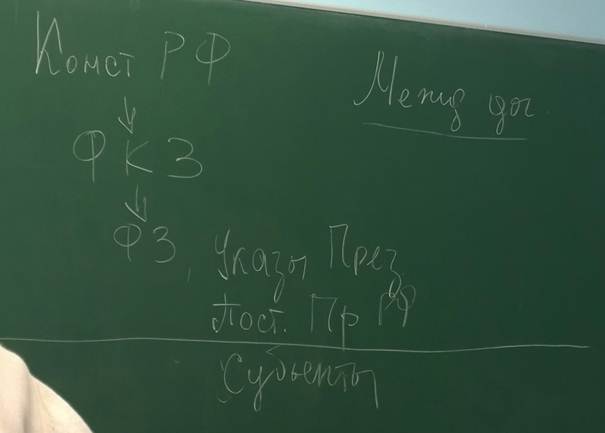 Конст РФ
Межд дог.
↓
ФКЗ
↓
ФЗ, Указы През.
Пост. Пр РФ
Субъекты